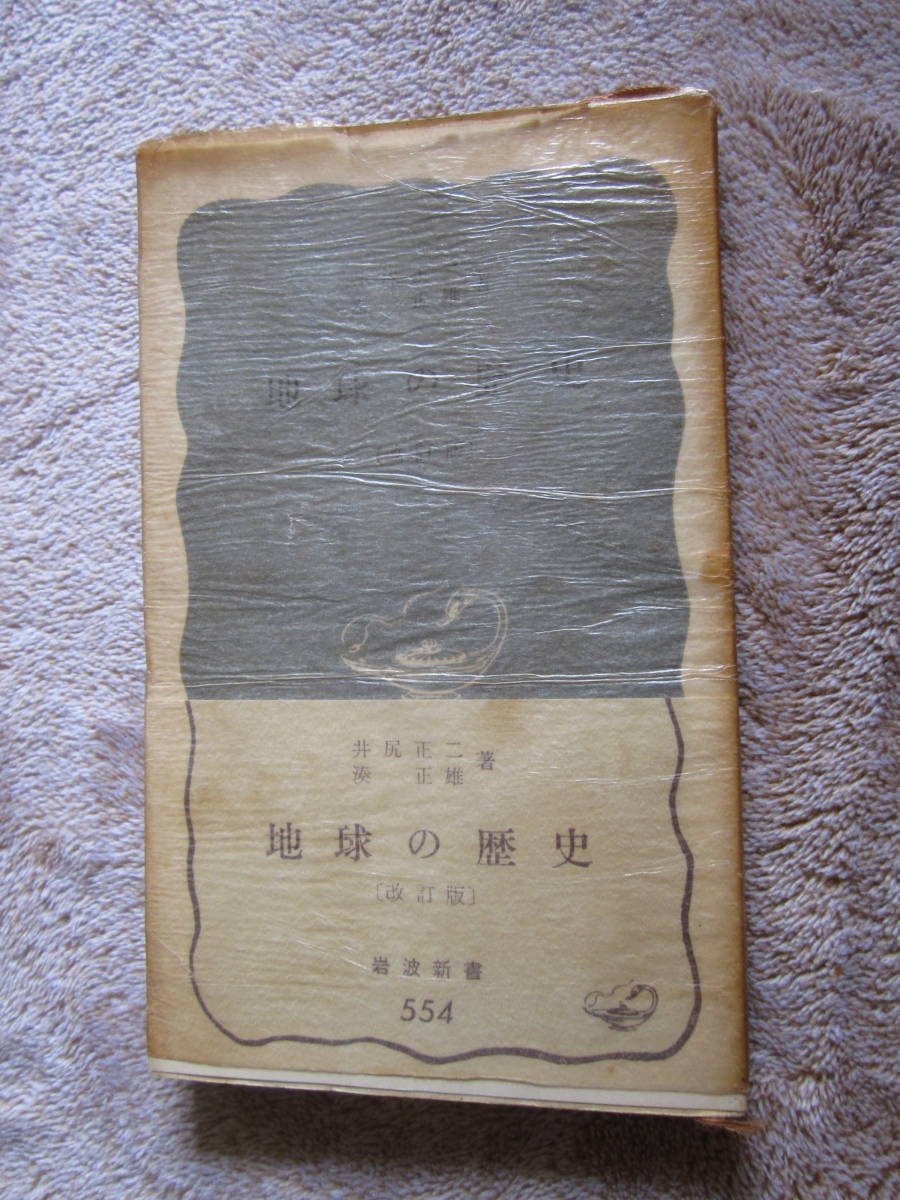 地球の歴史
井尻正二
湊 正雄 著
地球の歴史
〔改訂版〕
岩波新書
554